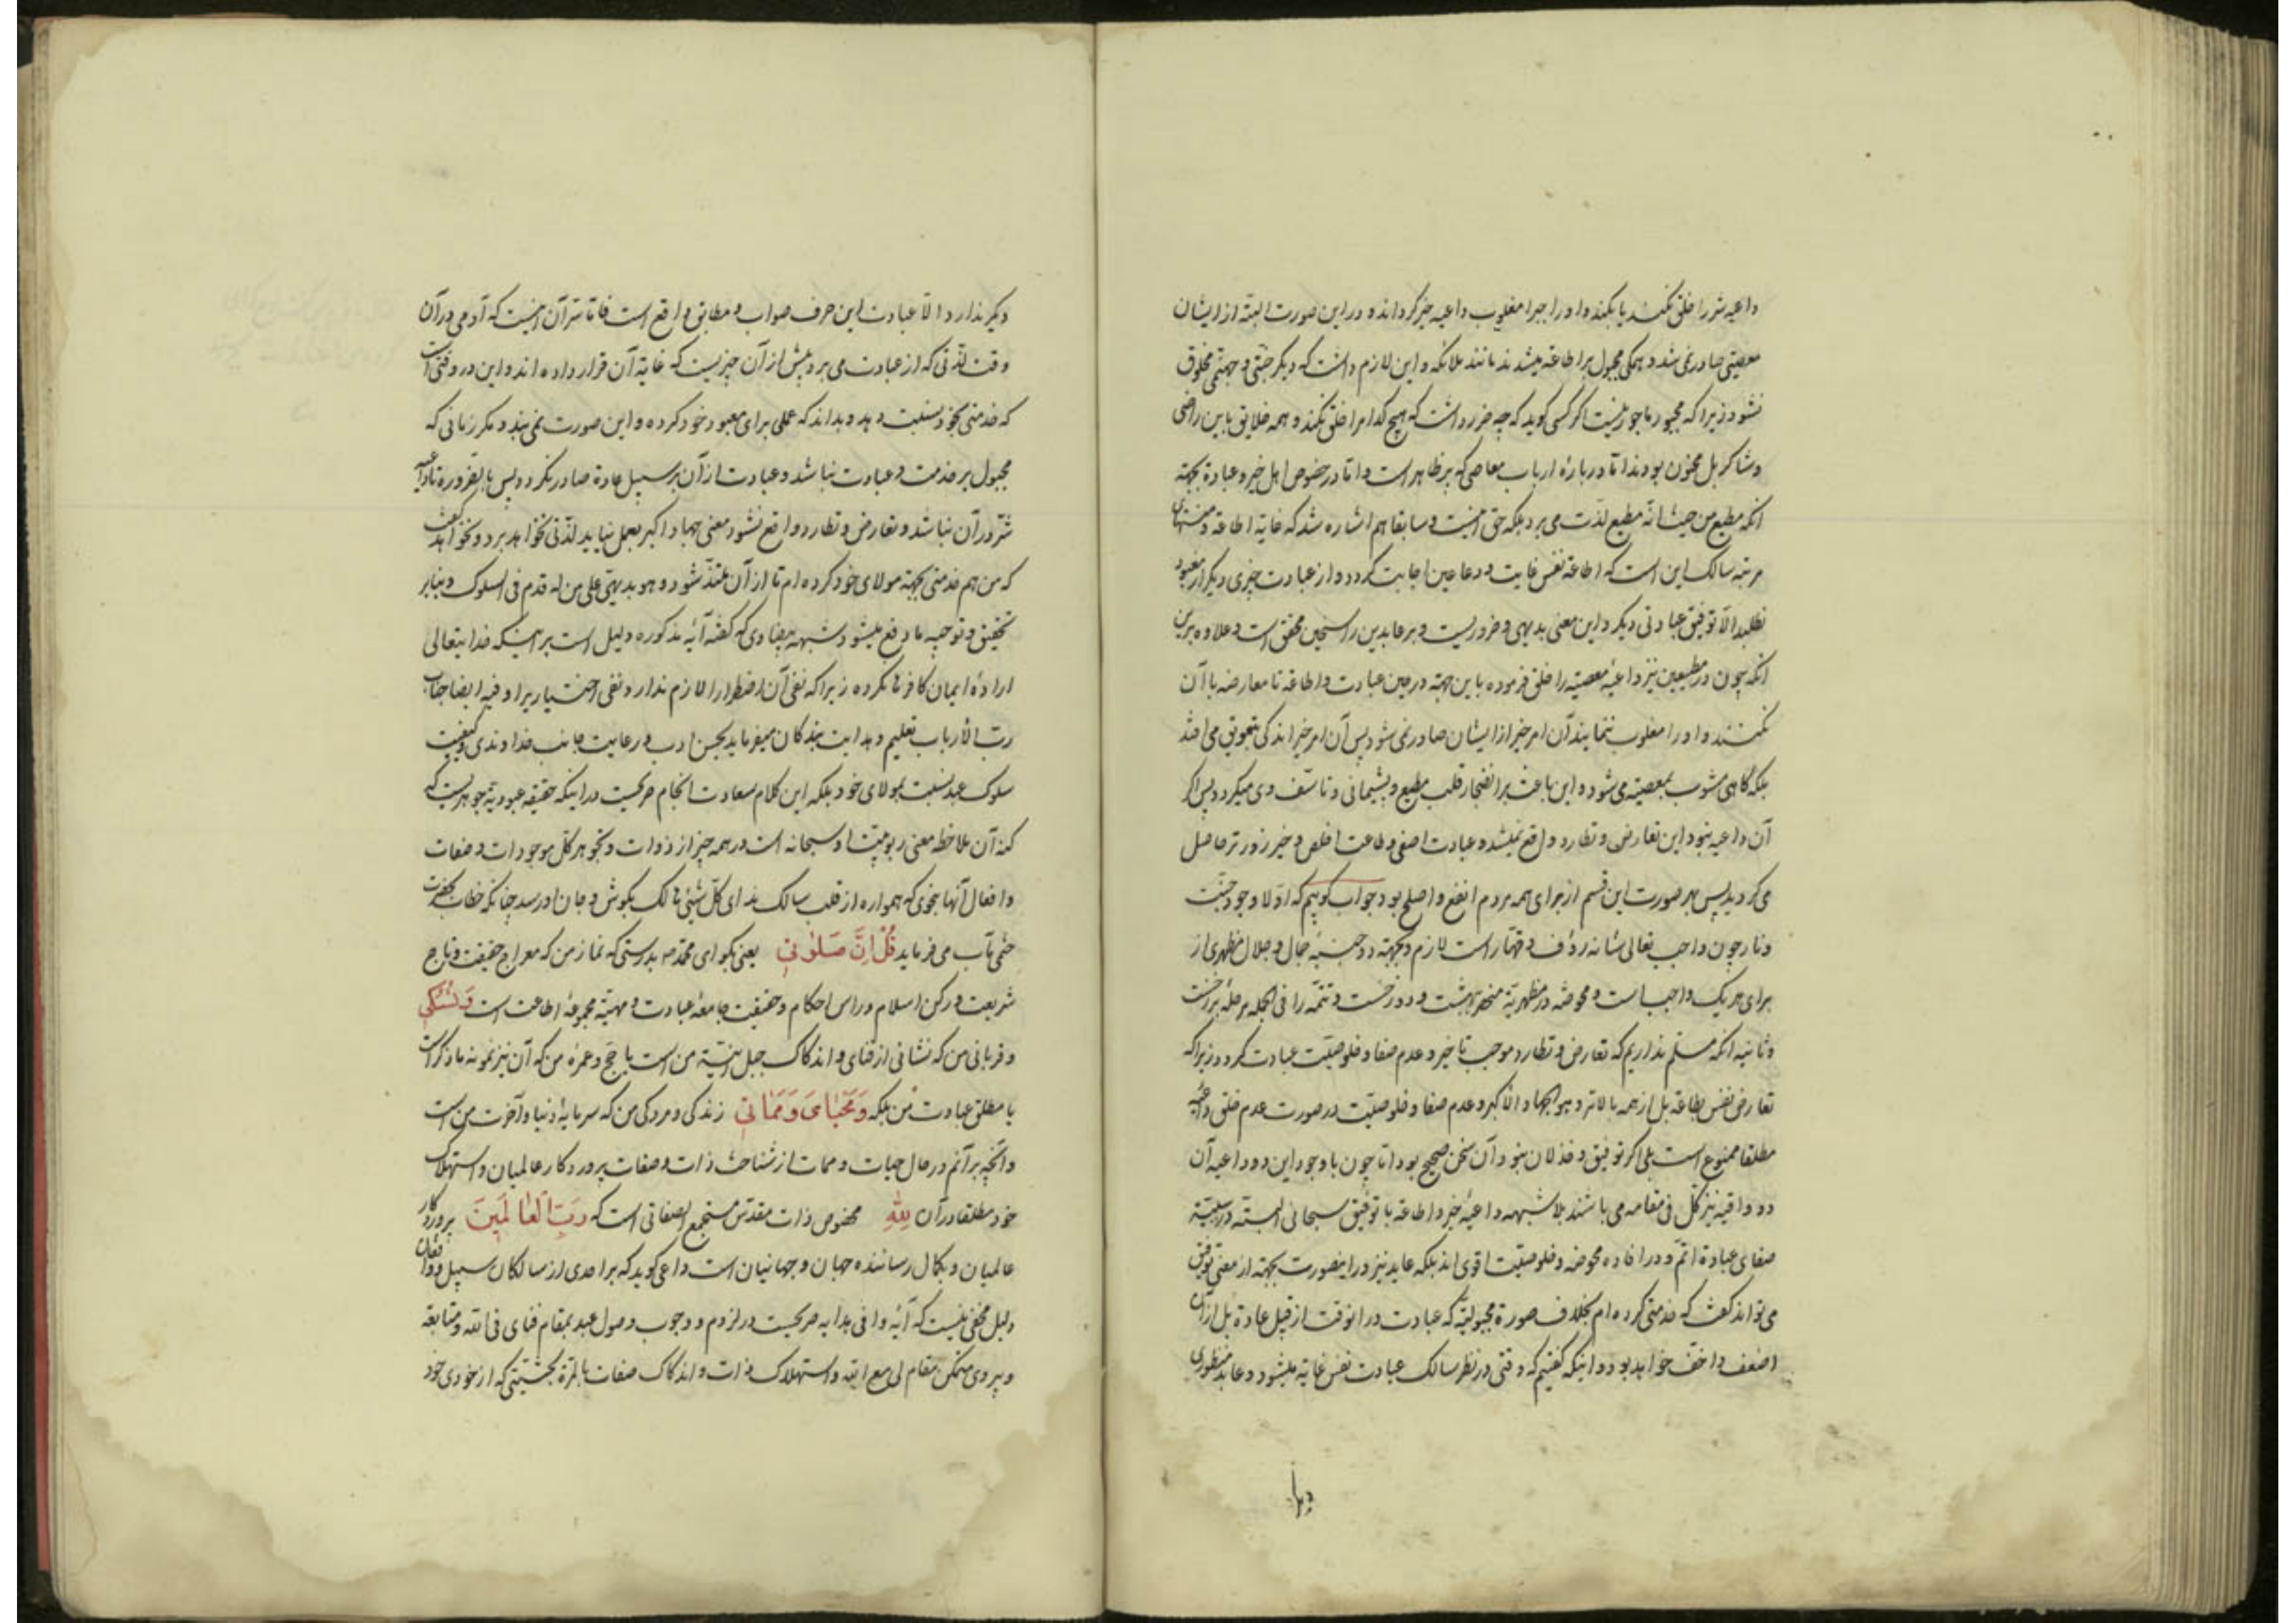 داعیه شر را خلق نکند یا بکند و او را جبرا مغلوب داعیه خیر گرداند و در این صورت البته از ایشان
معصیتی صادر نمی شد و همگی مجبول بر اطاعة میشدند مانند ملائکه و این لازم داشت که دیگر جنتی و جهنمی مخلوق
نشود زیرا که مجبور ماجور نیست اگر کسی کوید که چه ضرر داشت که هیچ کدام را خلق نکند و همه خلایق باین راضی
و شاکر بل محزون بودند اما در بارهٔ ارباب معاصی که پر ظاهر است و اما در خصوص اهل خیر و عبادة بجهة
انکه مطیع من حیث انّه مطیع لذّت می برد بلکه حق اینست و سابقا هم اشاره شد که غایة اطاعة و منتهای
مرتبه سالک این است که اطاعة نفس غایت و دعا عین اجابت کردد و از عبادت چیزی دیگر از معبود
نطلبد الّا توفیق عبادتی دیگر و این معنی بدیهی و ضروریست و بر عابدین راسخین محقق است و علاوه برین
انکه چون در مطیعین نیز داعیهٔ معصیة را خلق فرموده باین جهة در حین عبادت و اطاعة تا معارضه با آن
نکنند و او را مغلوب ننمایند آن امر خیر از ایشان صادر نمی شود پس آن امر خیر اندکی بتعویق می افتد
بلکه کاهی مشوب بمعصیة می شود و این باعث بر انضجار قلب مطیع و پشیمانی و تاسّف وی میکردد پس اگر
آن داعیه نبود این تعارض و تطارد واقع نمیشد و عبادت اصفی و طاعت اخلص و خیر زودتر حاصل
می کردید پس بهر صورت این قسم از برای همه مردم انفع و اصلح بود جواب کوییم که اوّلا وجود جنّت
و نار چون واجب تعالی شانه رؤف و قهّار است لازم و بجهة دو جنبهٔ جمال و جلال مظهری از
برای هر یک واجب است و محوضة در مظهریة منحصر بهشت و دوزخست و تتمّه را فی الجمله مرحلهٔ برزخست
و ثانیه انکه مسلّم نداریم که تعارض و تطارد موجب تاخیر و عدم صفا و خلوصیّت عبادت کردد زیرا که
تعارض نفس اطاعة بل از همه بالاتر و هو الجهاد الاکبر و عدم صفا و خلوصیّت در صورت عدم خلق داعیه
مطلقا ممنوع است بلی اگر توفیق و خذلان نبود آن سخن صحیح بود اما چون با وجود این دو داعیه آن
دو واقیه نیز کل فی مقامه می باشند بلا شبهه داعیهٔ خیر و اطاعة با توفیق سبحانی البته در سببیّة
صفای عبادة اتمّ و در افاده محوضة و خلوصیّت اقوی اند بلکه عابد نیز در اینصورت بجهة از معنی توفیق
می تواند کفت که خدمتی کرده ام بخلاف صورة مجبولیّة که عبادت در انوقت از قبیل عادة بل از آن
اضعف و اخفّ خواهد بود و اینکه کفتیم که وقتی در نظر سالک عبادت نفس غایة میشود و عابد منظوری
دیکر
دیکر ندارد الّا عبادت این حرف صواب و مطابق واقع است فاما سرّ آن اینست که آدمی در آن
وقت لذّتی که از عبادت می برد پیش از آن چیزیست که غایة آن قرار داده اند و این در وقتی است
که خدمتی بخود نسبت دهد و بداند که عملی برای معبود خود کرده و این صورت نمی بندد مکر زمانی که
مجبول بر خدمت و عبادت نباشد و عبادت از آن بر سبیل عادة صادر نکردد پس بالضرورة تا داعیه
شر در آن نباشد و تعارض و تطارد واقع نشود و معنی جهاد اکبر بعمل نیاید لذّتی نخواهد برد و نخواهد کفت
که من هم خدمتی بجهة مولای خود کرده ام تا از آن ملتذّ شود و هو بدیهی علی من له قدم فی السلوک و بنابر
تحقیق و توجیه ما دفع میشود شبهه بیضاوی که کفته آیه مذکوره دلیل است بر اینکه خدایتعالی
ارادهٔ ایمان کافر نکرده زیرا که نفی آن اضطرار لازم ندارد نفی اختیار یرا و فیه ایضا جناب
ربّ الأرباب تعلیم و هدایت بندکان میفرماید بحسن ادب و رعایت جانب خداوندی و کیفیت
سلوک عبد نسبت بمولای خود بلکه این کلام سعادت انجام صریحست در اینکه حقیقه عبودیة جوهریست که
کنه آن ملاحظه معنی ربوبیّت او سبحانه است در همه چیز از ذوات و تجوهر کل موجودات و صفات
و افعال آنها بنحوی که همواره از قلب سالک ندای کلّ شیئی هالک بکوش و جان او رسد چنانکه خطاب بحضرت
ختمی مآب می فرماید قُلْ اِنَّ صَلٰوتی یعنی بکو ای محمّد ص بدرستی که نماز من که معراج حقیقت و تاج
شریعت و رکن اسلام و راس احکام و حقیقت جامعهٔ عبادت و مهیّة مجموعهٔ اطاعت است وَ نُسُکی
و قربانی من که نشانی از فنای و اندکاک جبل انیّة من است یا حج و عمرهٔ من که آن نیز نمونه ما ذکر است
یا مطلق عبادت من بلکه وَمَحْیٰایَ وَمَمٰاتی زندگی و مردگی من که سرمایهٔ دنیا و آخرت من است
و آنچه بر آنم در حال حیات و ممات از شناخت ذات و صفات پروردکار عالمیان و استهلاک
خود مطلقا در آن لِلّٰهِ مخصوص ذات مقدّس مستجمع الصفاتی است که رَبِّ الْعٰالَمینَ پروردکار
عالمیان و بکمال رساننده جهان و جهانیان است داعی کوید که بر احدی از سالکان سبیل و واقفان
دلیل مخفی نیست که آیهٔ وافی هدایه صریحست در لزوم و وجوب وصول عبد بمقام فنای فی الله و متابعة
و پیروی متمکّن مقام لی مع الله و استهلاک ذات و اندکاک صفات بالمرّة بحیثیّتی که از خودی خود